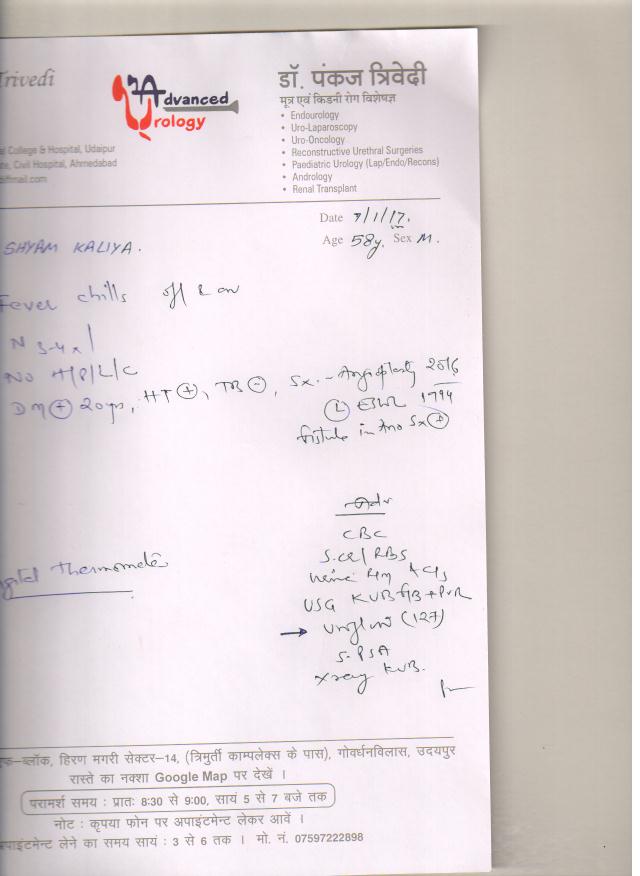 Trivedi
Advanced
Urology
al College & Hospital, Udaipur
te, Civil Hospital, Ahmedabad
@ffmail.com
डॉ. पंकज त्रिवेदी
मूत्र एवं किडनी रोग विशेषज्ञ
• Endourology
• Uro-Laparoscopy
• Uro-Oncology
• Reconstructive Urethral Surgeries
• Paediatric Urology (Lap/Endo/Recons)
• Andrology
• Renal Transplant
Date 7/1/17.
Age 58y. Sex M.
SHYAM KALIYA.
Fever chills off & on
N 3-4x
No H/P/L/C
DM (+) 20yrs, HT (+), TB (-), Sx. - Angioplasty 2016
(L) ESWL 1994
fistula in Ano Sx (+)
CBC
S.cr/RBS
Urine Rm + C/S
USG KUB + PVR
→ Uroflow (127)
S. PSA
Xray KUB.
gital Thermomete
एफ-ब्लॉक, हिरण मगरी सेक्टर-14, (त्रिमुर्ती काम्पलेक्स के पास), गोवर्धनविलास, उदयपुर
रास्ते का नक्शा Google Map पर देखें ।
परामर्श समय : प्रातः 8:30 से 9:00, सायं 5 से 7 बजे तक
नोट : कृपया फोन पर अपाइंटमेन्ट लेकर आवें ।
अपाइंटमेन्ट लेने का समय सायं : 3 से 6 तक । मो. नं. 07597222898